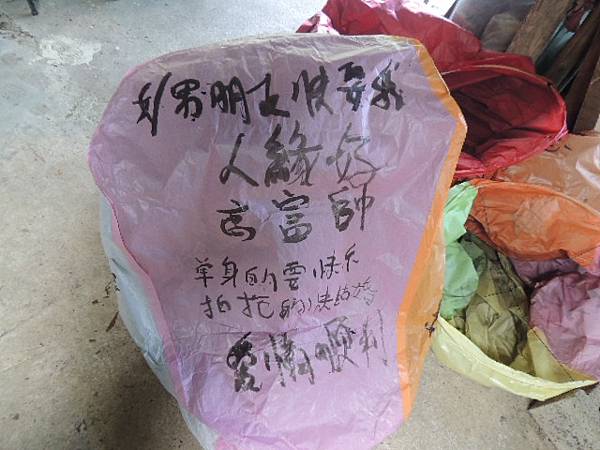 男朋友快要我
人緣好
高富帥
單身的要快乐
拍拖的快结婚
愛情順利